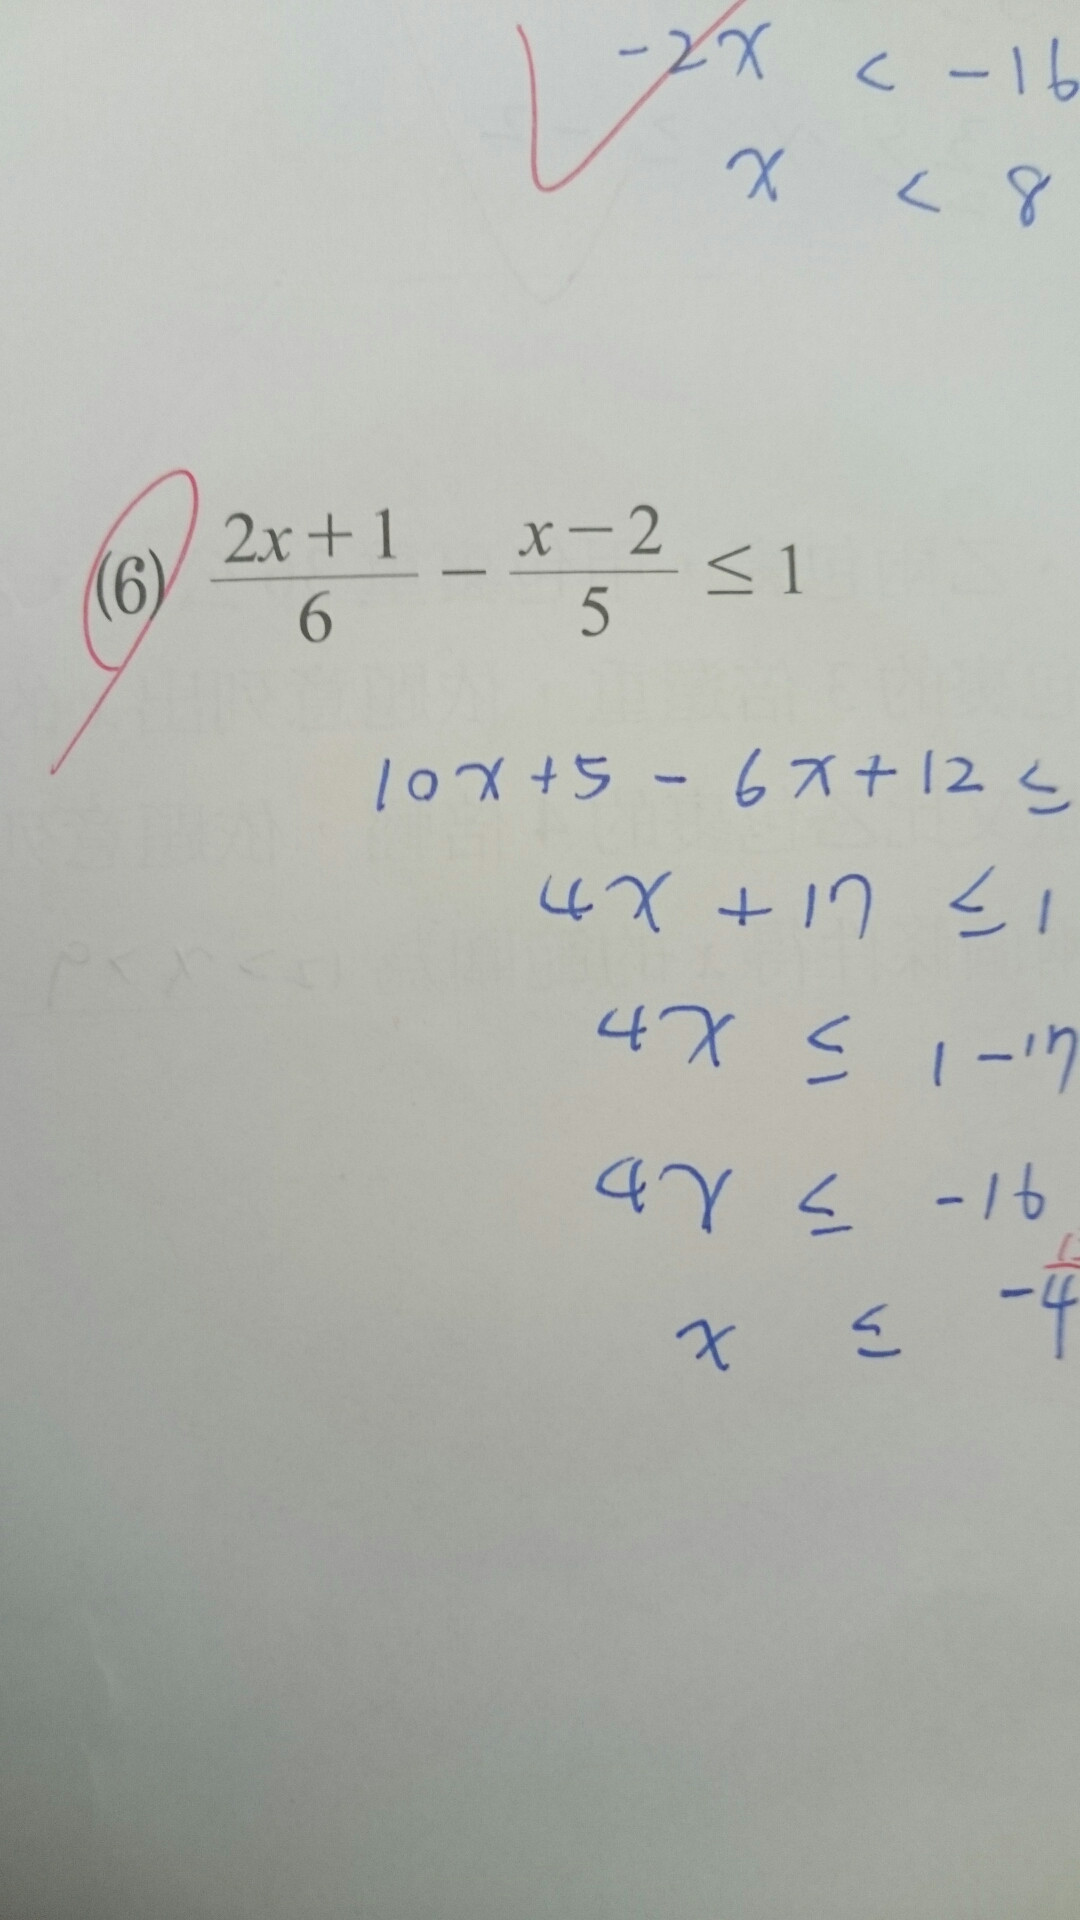 -2x < -16
x < 8
(6) (2x+1)/6 - (x-2)/5 ≤ 1
10x+5 - 6x+12 ≤
4x + 17 ≤ 1
4x ≤ 1-17
4x ≤ -16
x ≤ -4